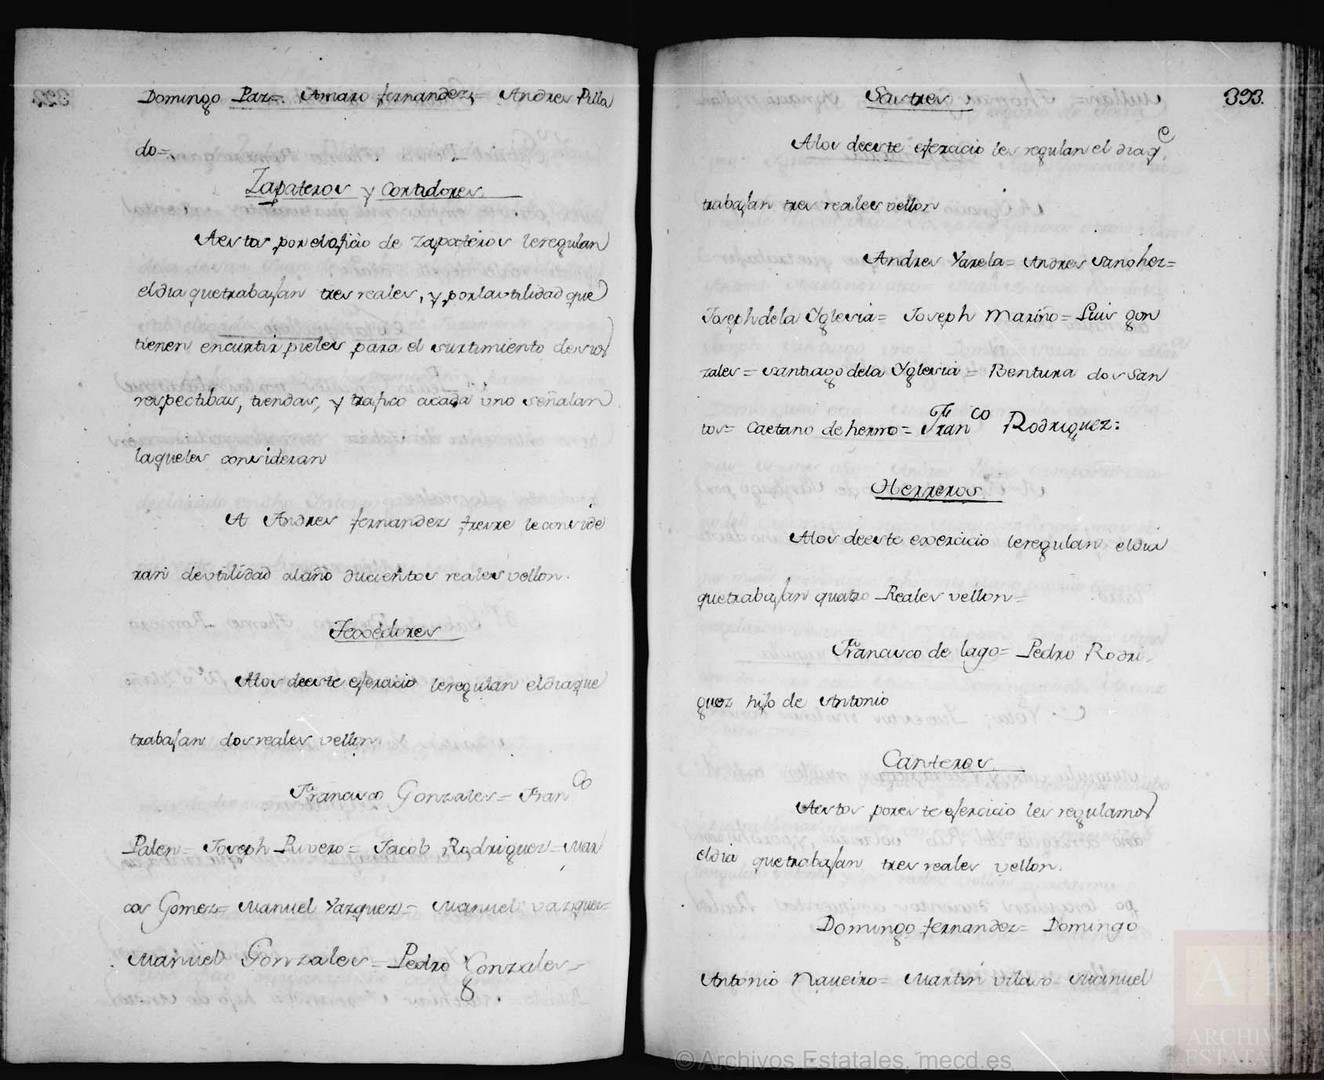 Domingo Paz= Amaro fernandez= Andres Pilla
do=
Zapateros y Cortidores
Aestos, por el oficio de Zapateros leregulan
eldia quetrabajan tres reales, y porlautilidad que
tienen encurtir pieles para el surtimiento desus
respectibas, tiendas, y trafico acada uno señalan
laqueles consideran
A Andres fernandez freire leconside
ran deutilidad alaño ducientos reales vellon.
Texedores
Alos deeste exercicio leregulan eldiaque
trabajan dosreales vellon.
Francisco Gonzales= Franco
Palen= Joseph Rivero= Jacob Rodriguez= Mar
cos Gomez= Manuel Vazquez= Manuel vazquez=
Manuel Gonzales= Pedro Gonzales=
Sastres
393.
Alos deeste exercicio les regulan el dia q.e
trabajan tres reales vellon
Andres Varela= Andres Sanchez=
Joseph dela Yglesia= Joseph Mariño= Luis gon
zales= Santiago dela Yglesia= Bentura dosSan
tos= Caetano dehermo= Franco Rodriguez=
Herreros
Alos deeste exercicio leregulan eldia
quetrabajan quatro Reales vellon=
Francisco de lago= Pedro Rodri
guez hijo de Antonio
Canteros
Aestos poreste exercicio les regulamos
eldia quetrabajan tres reales vellon.
Domingo fernandez= Domingo
Antonio Naveiro= Martin vilaso= Manuel
© Archivos Estatales, mecd.es
ARCHIV
ESTATA